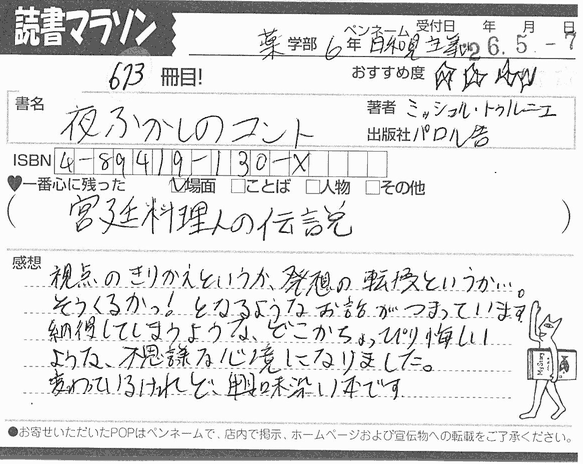 読書マラソン
ペンネーム 受付日 年 月 日
薬学部 6年 日和見主義 26.5.-7
673冊目! おすすめ度 ☆☆☆☆
書名 夜ふかしのコント
著者 ミッシェル・トゥルニエ
出版社 パロル舎
ISBN 4-89419-130-X
♥一番心に残った ☑場面 □ことば □人物 □その他
(宮廷料理人の伝説)
感想
視点のきりかえというか、発想の転換というか…。
そうくるかっ!となるようなお話がつまっています
納得してしまうような、どこかちょっぴり悔しい
ような、不思議な心境になりました。
変わっているけれど、興味深い本です
●お寄せいただいたPOPはペンネームで、店内で掲示、ホームページおよび宣伝物への転載をご了承ください。